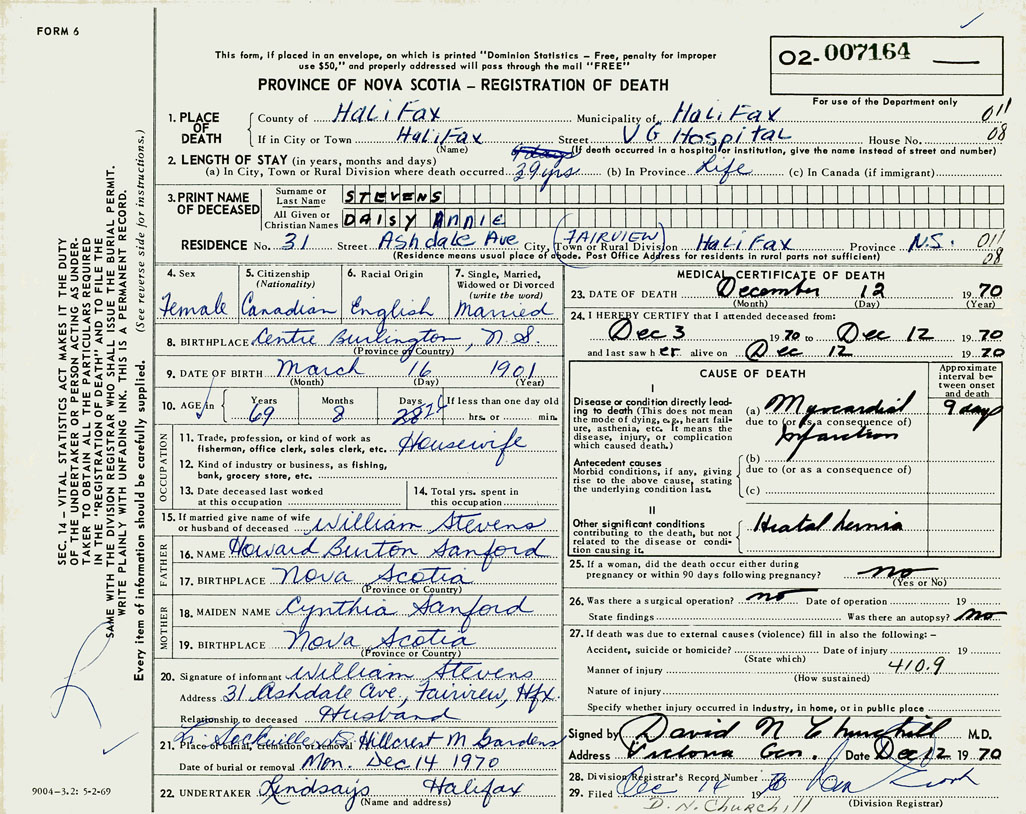 FORM 6
This form, if placed in an envelope, on which is printed "Dominion Statistics – Free, penalty for improper
use $50," and properly addressed will pass through the mail "FREE"
PROVINCE OF NOVA SCOTIA – REGISTRATION OF DEATH
02-007164
For use of the Department only
1. PLACE OF DEATH
County of HaLiFax Municipality of HaLiFax 011
If in City or Town HaLiFax Street VG Hospital House No. 08
(Name) (If death occurred in a hospital or institution, give the name instead of street and number)
2. LENGTH OF STAY (in years, months and days)
(a) In City, Town or Rural Division where death occurred 39 yrs (b) In Province Life (c) In Canada (if immigrant)
3. PRINT NAME OF DECEASED
Surname or Last Name STEVENS
All Given or Christian Names DAISY ANNIE
RESIDENCE No. 31 Street Ashdale Ave City, Town or Rural Division (FAIRVIEW) HaLiFax Province N.S. 011
(Residence means usual place of abode. Post Office Address for residents in rural parts not sufficient) 08
4. Sex Female
5. Citizenship (Nationality) Canadian
6. Racial Origin English
7. Single, Married, Widowed or Divorced (write the word) Married
8. BIRTHPLACE Centre Burlington, N.S.
(Province or Country)
9. DATE OF BIRTH March 16 1901
(Month) (Day) (Year)
10. AGE in Years 69 Months 8 Days 28 26 If less than one day old hrs. or min.
OCCUPATION
11. Trade, profession, or kind of work as fisherman, office clerk, sales clerk, etc. Housewife
12. Kind of industry or business, as fishing, bank, grocery store, etc.
13. Date deceased last worked at this occupation
14. Total yrs. spent in this occupation
15. If married give name of wife or husband of deceased William Stevens
FATHER
16. NAME Howard Burton Sanford
17. BIRTHPLACE Nova Scotia
(Province or Country)
MOTHER
18. MAIDEN NAME Cynthia Sanford
19. BIRTHPLACE Nova Scotia
(Province or Country)
20. Signature of informant William Stevens
Address 31 Ashdale Ave, Fairview, Hfx.
Relationship to deceased Husband
21. Place of burial, cremation or removal Sackville Hillcrest M Gardens
Date of burial or removal Mon. Dec 14 1970
22. UNDERTAKER Lindsays Halifax
(Name and address)
MEDICAL CERTIFICATE OF DEATH
23. DATE OF DEATH December 12 1970
(Month) (Day) (Year)
24. I HEREBY CERTIFY that I attended deceased from:
Dec 3 1970 to Dec 12 1970
and last saw her alive on Dec 12 1970
CAUSE OF DEATH
Approximate interval between onset and death
I
Disease or condition directly leading to death (This does not mean the mode of dying, e.g., heart failure, asthenia, etc. It means the disease, injury, or complication which caused death.)
(a) Myocardial 9 days
due to (or as a consequence of)
Infarction
Antecedent causes
Morbid conditions, if any, giving rise to the above cause, stating the underlying condition last.
(b)
due to (or as a consequence of)
(c)
II
Other significant conditions
contributing to the death, but not related to the disease or condition causing it.
Hiatal hernia
25. If a woman, did the death occur either during pregnancy or within 90 days following pregnancy? no
(Yes or No)
26. Was there a surgical operation? no Date of operation 19
State findings Was there an autopsy? no
27. If death was due to external causes (violence) fill in also the following: –
Accident, suicide or homicide? Date of injury 19
(State which)
Manner of injury 410.9
(How sustained)
Nature of injury
Specify whether injury occurred in industry, in home, or in public place
Signed by David N Churchill M.D.
Address Victoria Gen. Date Dec 12 1970
28. Division Registrar's Record Number
29. Filed Dec 14 1970
(Division Registrar)
D. N. CHURCHILL
SEC. 14 – VITAL STATISTICS ACT MAKES IT THE DUTY
OF THE UNDERTAKER OR PERSON ACTING AS UNDER-
TAKER TO OBTAIN ALL THE PARTICULARS REQUIRED
IN THE "REGISTRATION OF DEATH" AND TO FILE THE
SAME WITH THE DIVISION REGISTRAR WHO SHALL ISSUE THE BURIAL PERMIT.
WRITE PLAINLY WITH UNFADING INK. THIS IS A PERMANENT RECORD.
Every item of information should be carefully supplied. (See reverse side for instructions.)
9004-3.2: 5-2-69